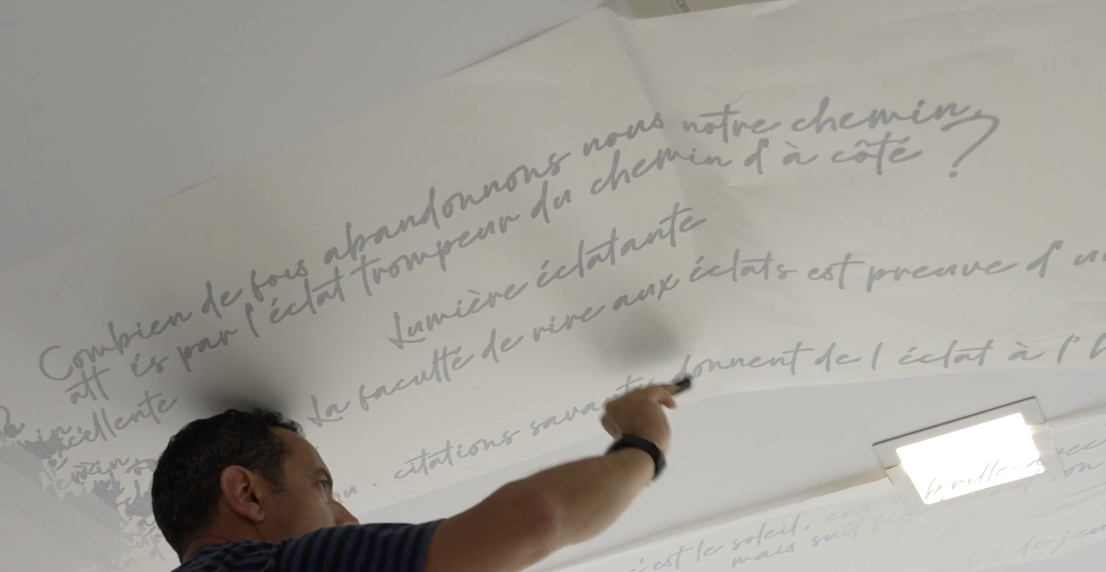 Combien de fois abandonnons nous notre chemin
att és par l'éclat trompeur du chemin d'à côté ?
Lumière éclatante
xcellente
La faculté de rire aux éclats est preuve d'u
citations savante donnent de l'éclat à l'h
brille avec
c'est le soleil.
mais suit